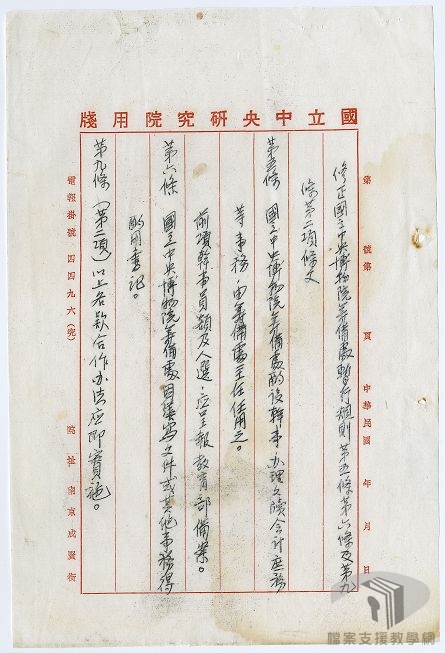 國立中央研究院用牋
第 號第 頁 中華民國 年 月 日
修正國立中央博物院籌備處暫行規則第五條第六條及第九
條第二項條文
第五條 國立中央博物院籌備處酌設幹事、办理文牘会計庶務
等事務,由籌備處主任任用之。
前項幹事員額及人選,应呈報教育部備案。
第六條 國立中央博物院籌備處因繕寫文件或其他事務得
酌用書記。
第九條(第二項)以上各款合作办法应即實施。
電報掛號 四四九六(完)
院址 南京成賢街
檔案支援教學網